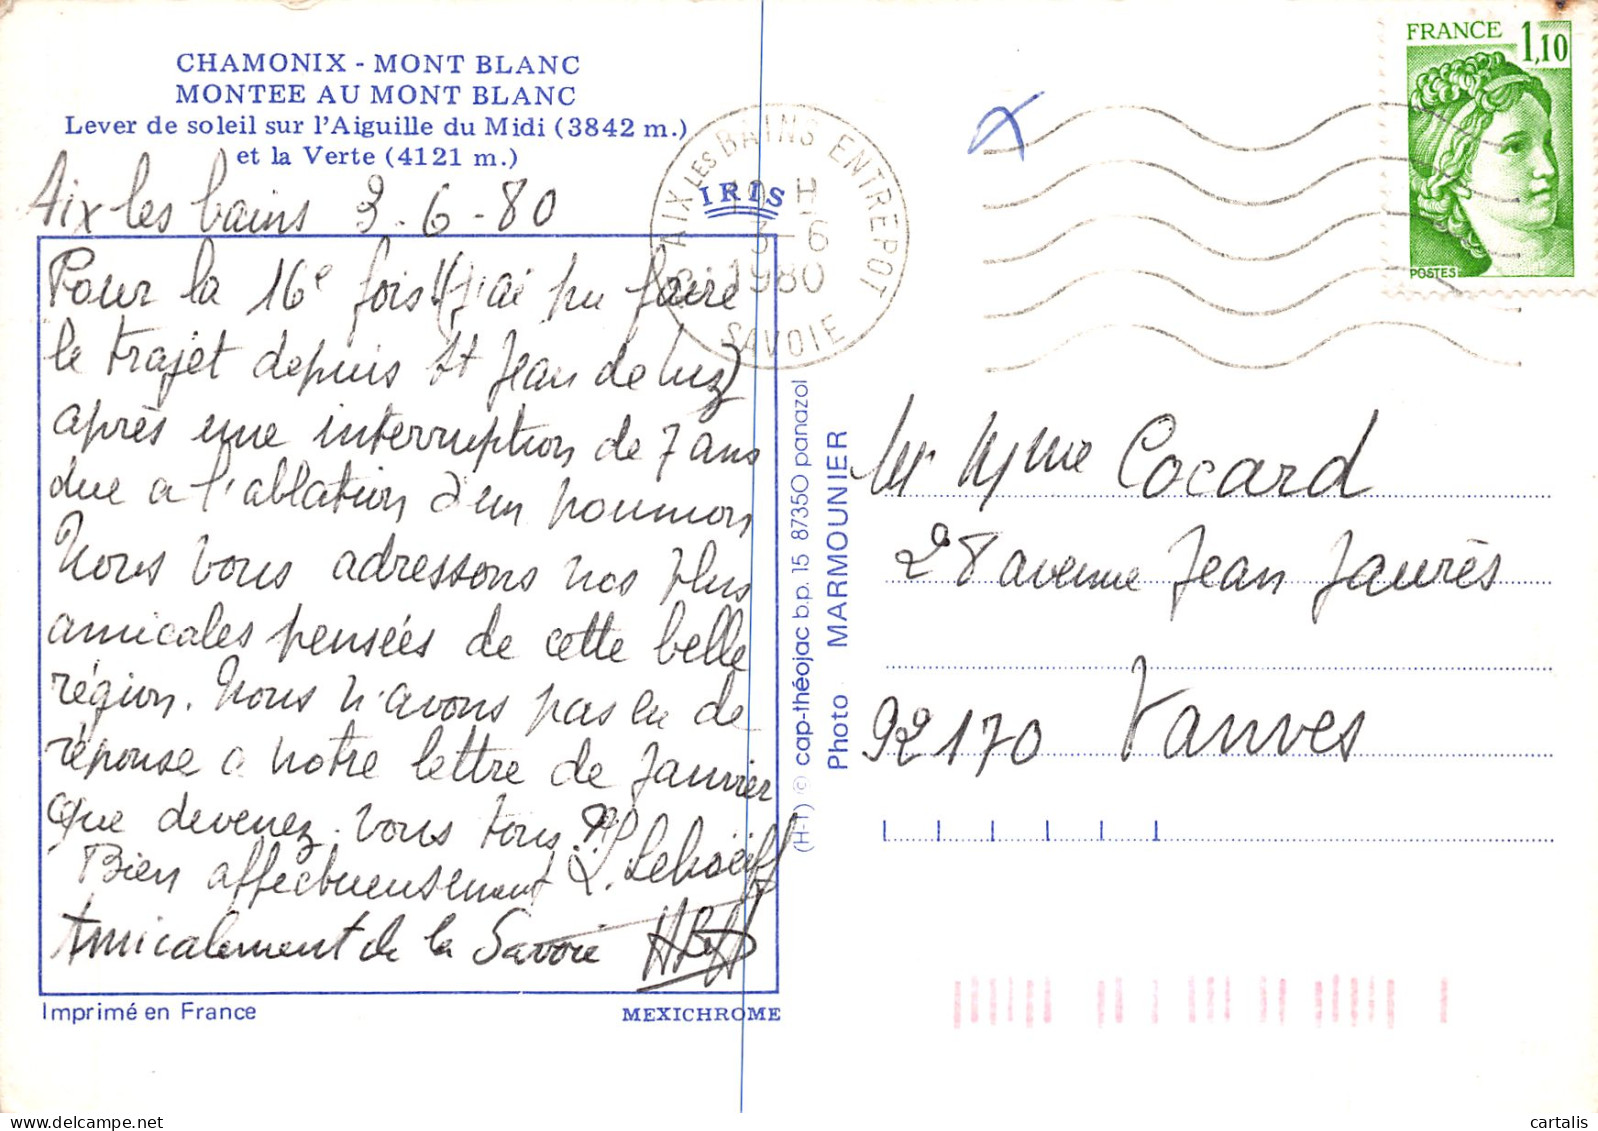 CHAMONIX - MONT BLANC
MONTEE AU MONT BLANC
Lever de soleil sur l'Aiguille du Midi (3842 m.)
et la Verte (4121 m.)
IRIS
Aix-les bains 3-6-80
Pour la 16e fois (j'ai pu faire
le trajet depuis St Jean de Luz)
après une interruption de 7 ans
due a l'ablation d'un poumon
Nous vous adressons nos plus
amicales pensées de cette belle
région. Nous n'avons pas eu de
réponse a notre lettre de Janvier
Que devenez-vous tous ?
Bien affectueusement
Amicalement de la Savoie
Imprimé en France
MEXICHROME
(H-T) © cap-théojac b.p. 15 87350 panazol
Photo MARMOUNIER
AIX LES BAINS ENTREPOT
3-6
1980
SAVOIE
FRANCE 1,10
POSTES
Mr Mme Cocard
28 avenue Jean Jaurès
92170 Vanves
cartalis